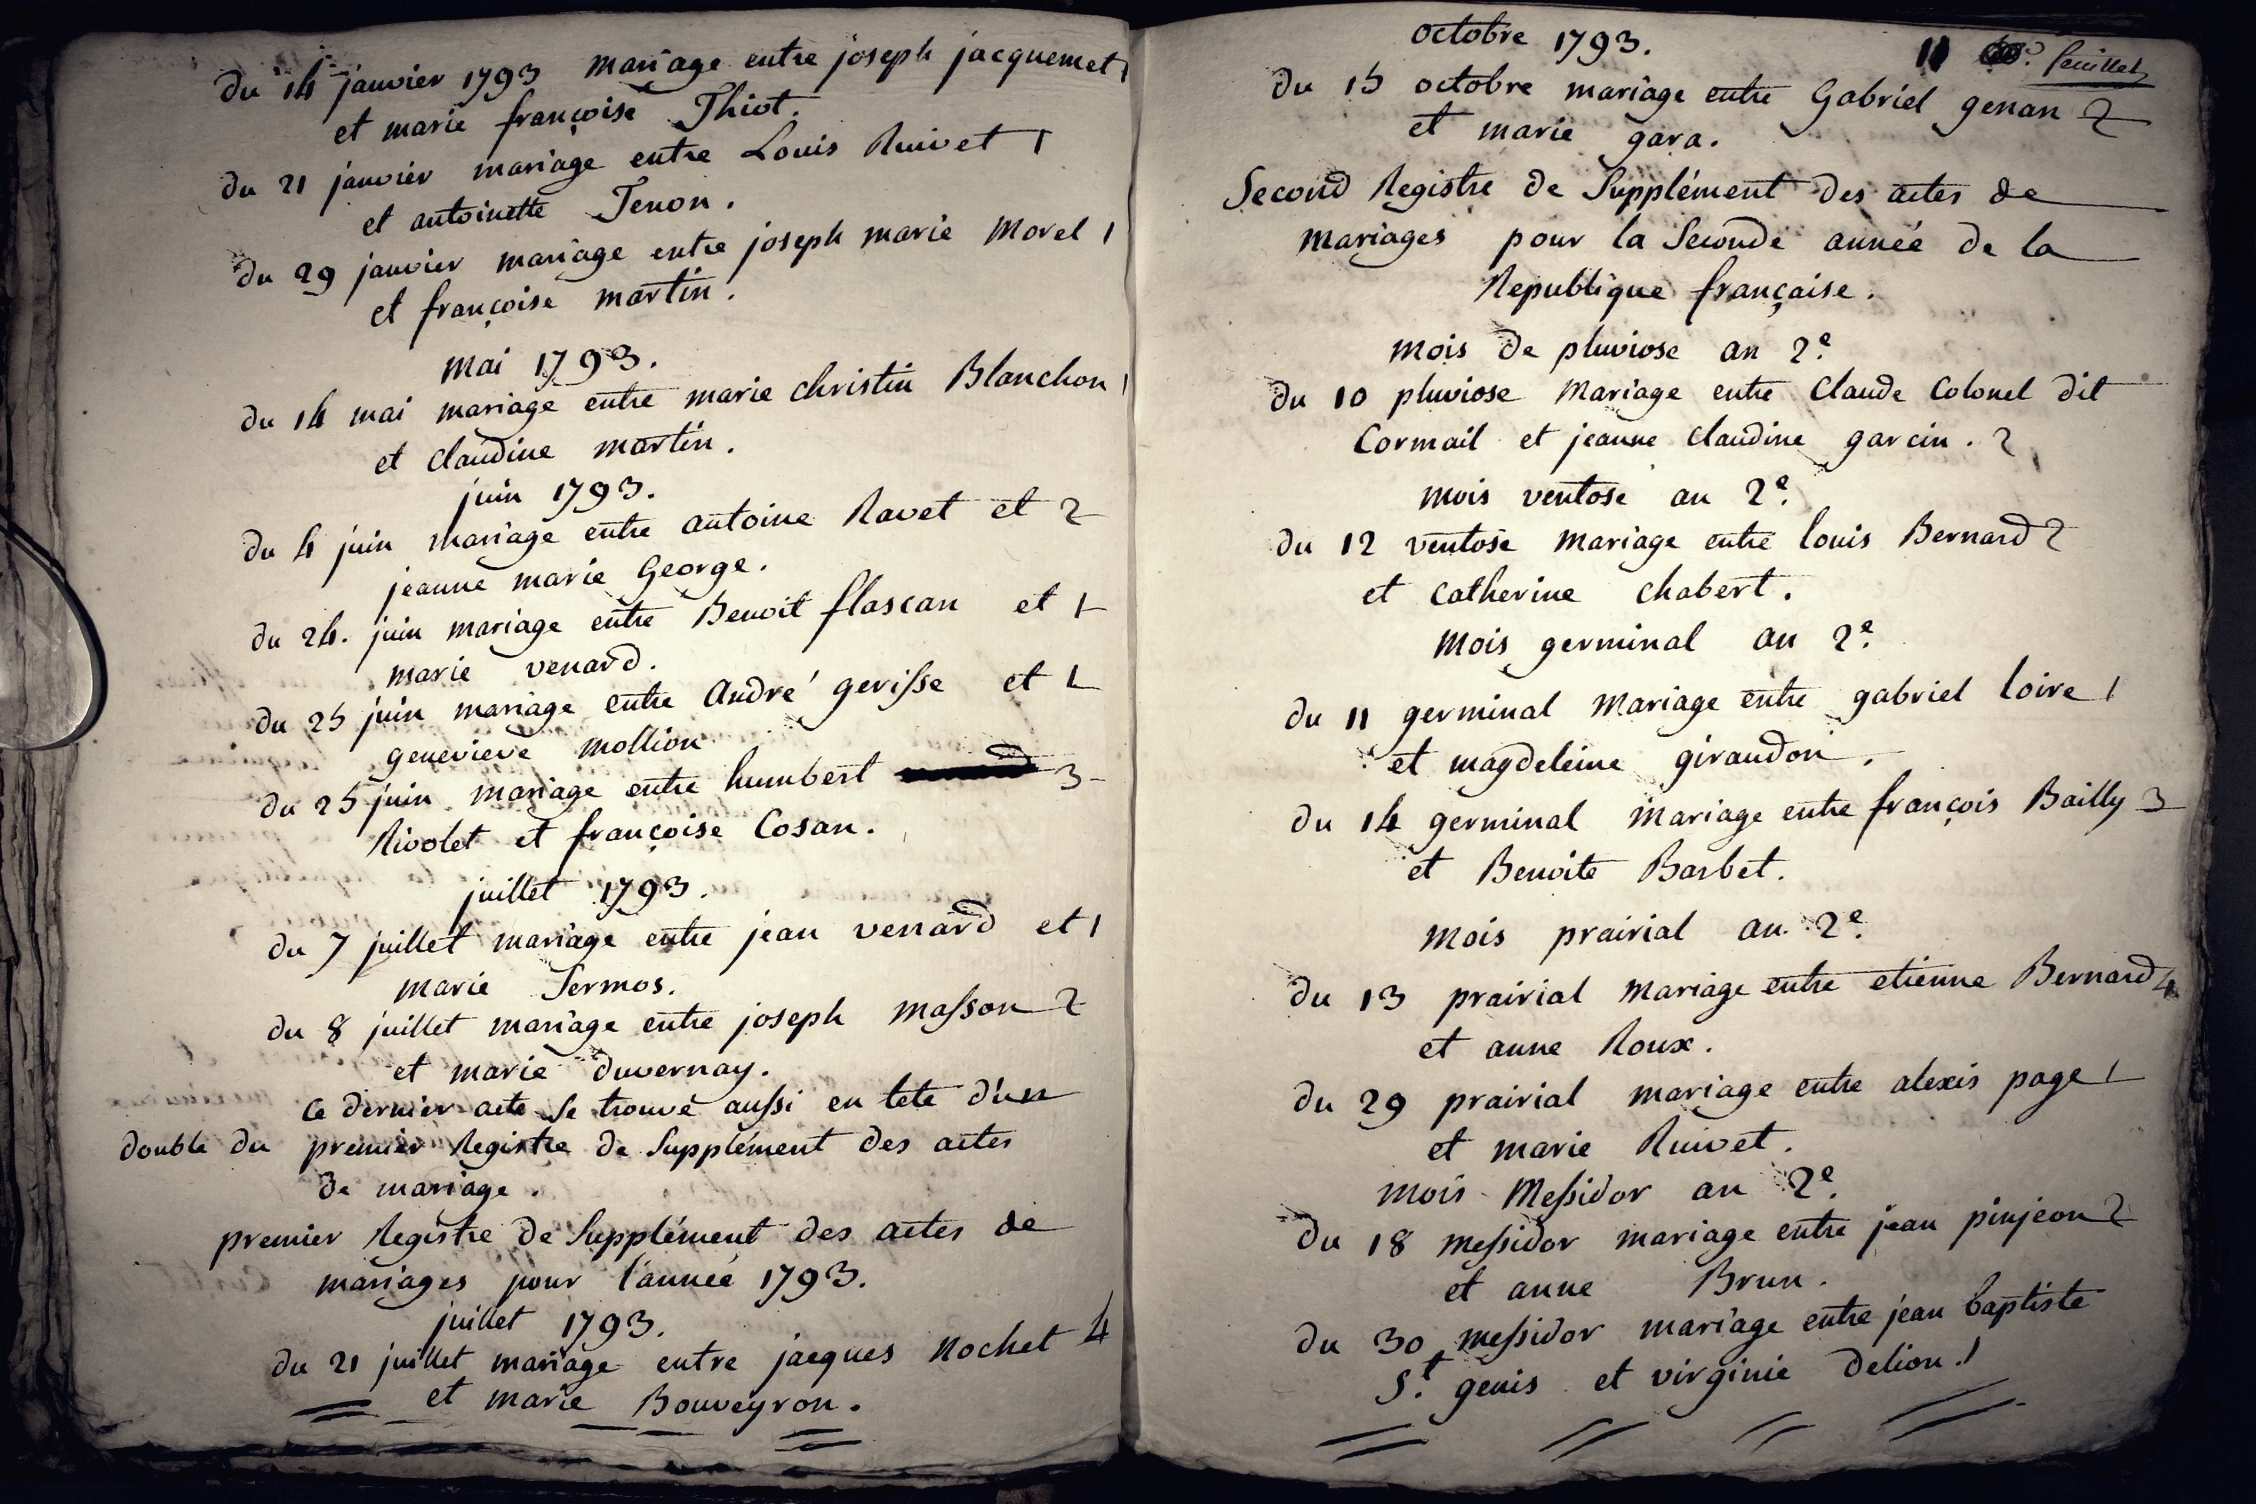 du 14 janvier 1793 mariage entre joseph jacquemet 1
et marie françoise Thiot.
du 21 janvier mariage entre Louis Ruivet 1
et antoinette Tenon.
du 29 janvier mariage entre joseph marie Morel 1
et françoise martin.
mai 1793.
du 14 mai mariage entre marie christin Blanchon 1
et claudine martin.
juin 1793.
du 4 juin mariage entre antoine Ravet et 2
jeanne marie George.
du 24. juin mariage entre Benoit flascan et 1
marie venard.
du 25 juin mariage entre André gerisse et 1
genevieve mollion
du 25 juin mariage entre humbert 3
Rivolet et françoise Cosan.
juillet 1793.
du 7 juillet mariage entre jean venard et 1
marie Sermos.
du 8 juillet mariage entre joseph masson 2
et marie duvernay.
ce dernier acte se trouve aussi en tete d'un
double du premier Registre de Supplément des actes
de mariage.
premier Registre de Supplément des actes de
mariages pour l'année 1793.
juillet 1793.
du 21 juillet mariage entre jacques Rochet 4
et marie Bouveyron.
11 feuillet
octobre 1793.
du 15 octobre mariage entre Gabriel genan 2
et marie gara.
Second Registre de Supplément des actes de
mariages pour la Seconde année de la
Republique française.
mois de pluviose an 2e.
du 10 pluviose mariage entre Claude Colonel dit
Cormail et jeanne claudine garcin. 2
mois ventose an 2e.
du 12 ventose mariage entre louis Bernard 2
et catherine chabert.
mois germinal an 2e.
du 11 germinal mariage entre gabriel loire 1
et magdeleine giraudon.
du 14 germinal mariage entre françois Bailly 3
et Benoite Barbet.
mois prairial an 2e.
du 13 prairial mariage entre etienne Bernard 4
et anne Roux.
du 29 prairial mariage entre alexis page 1
et marie Ruivet.
mois Messidor an 2e.
du 18 messidor mariage entre jean pinjeon 2
et anne Brun.
du 30 messidor mariage entre jean baptiste
St. genis et virginie Delion. 1